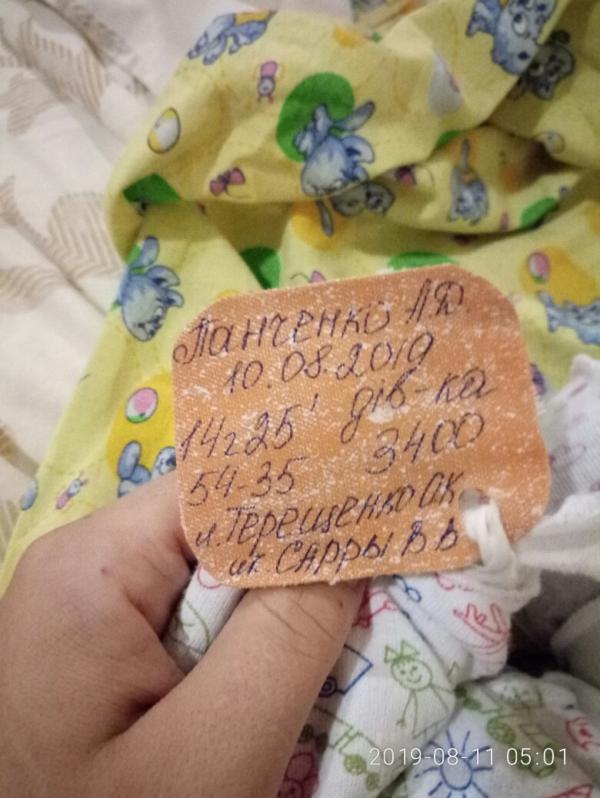 Панченко А.Ю.
10.08.2019
14г25' дів-ка
54-35 3400
л. Терещенко ОК
ик. САРРЫ В В
2019-08-11 05:01